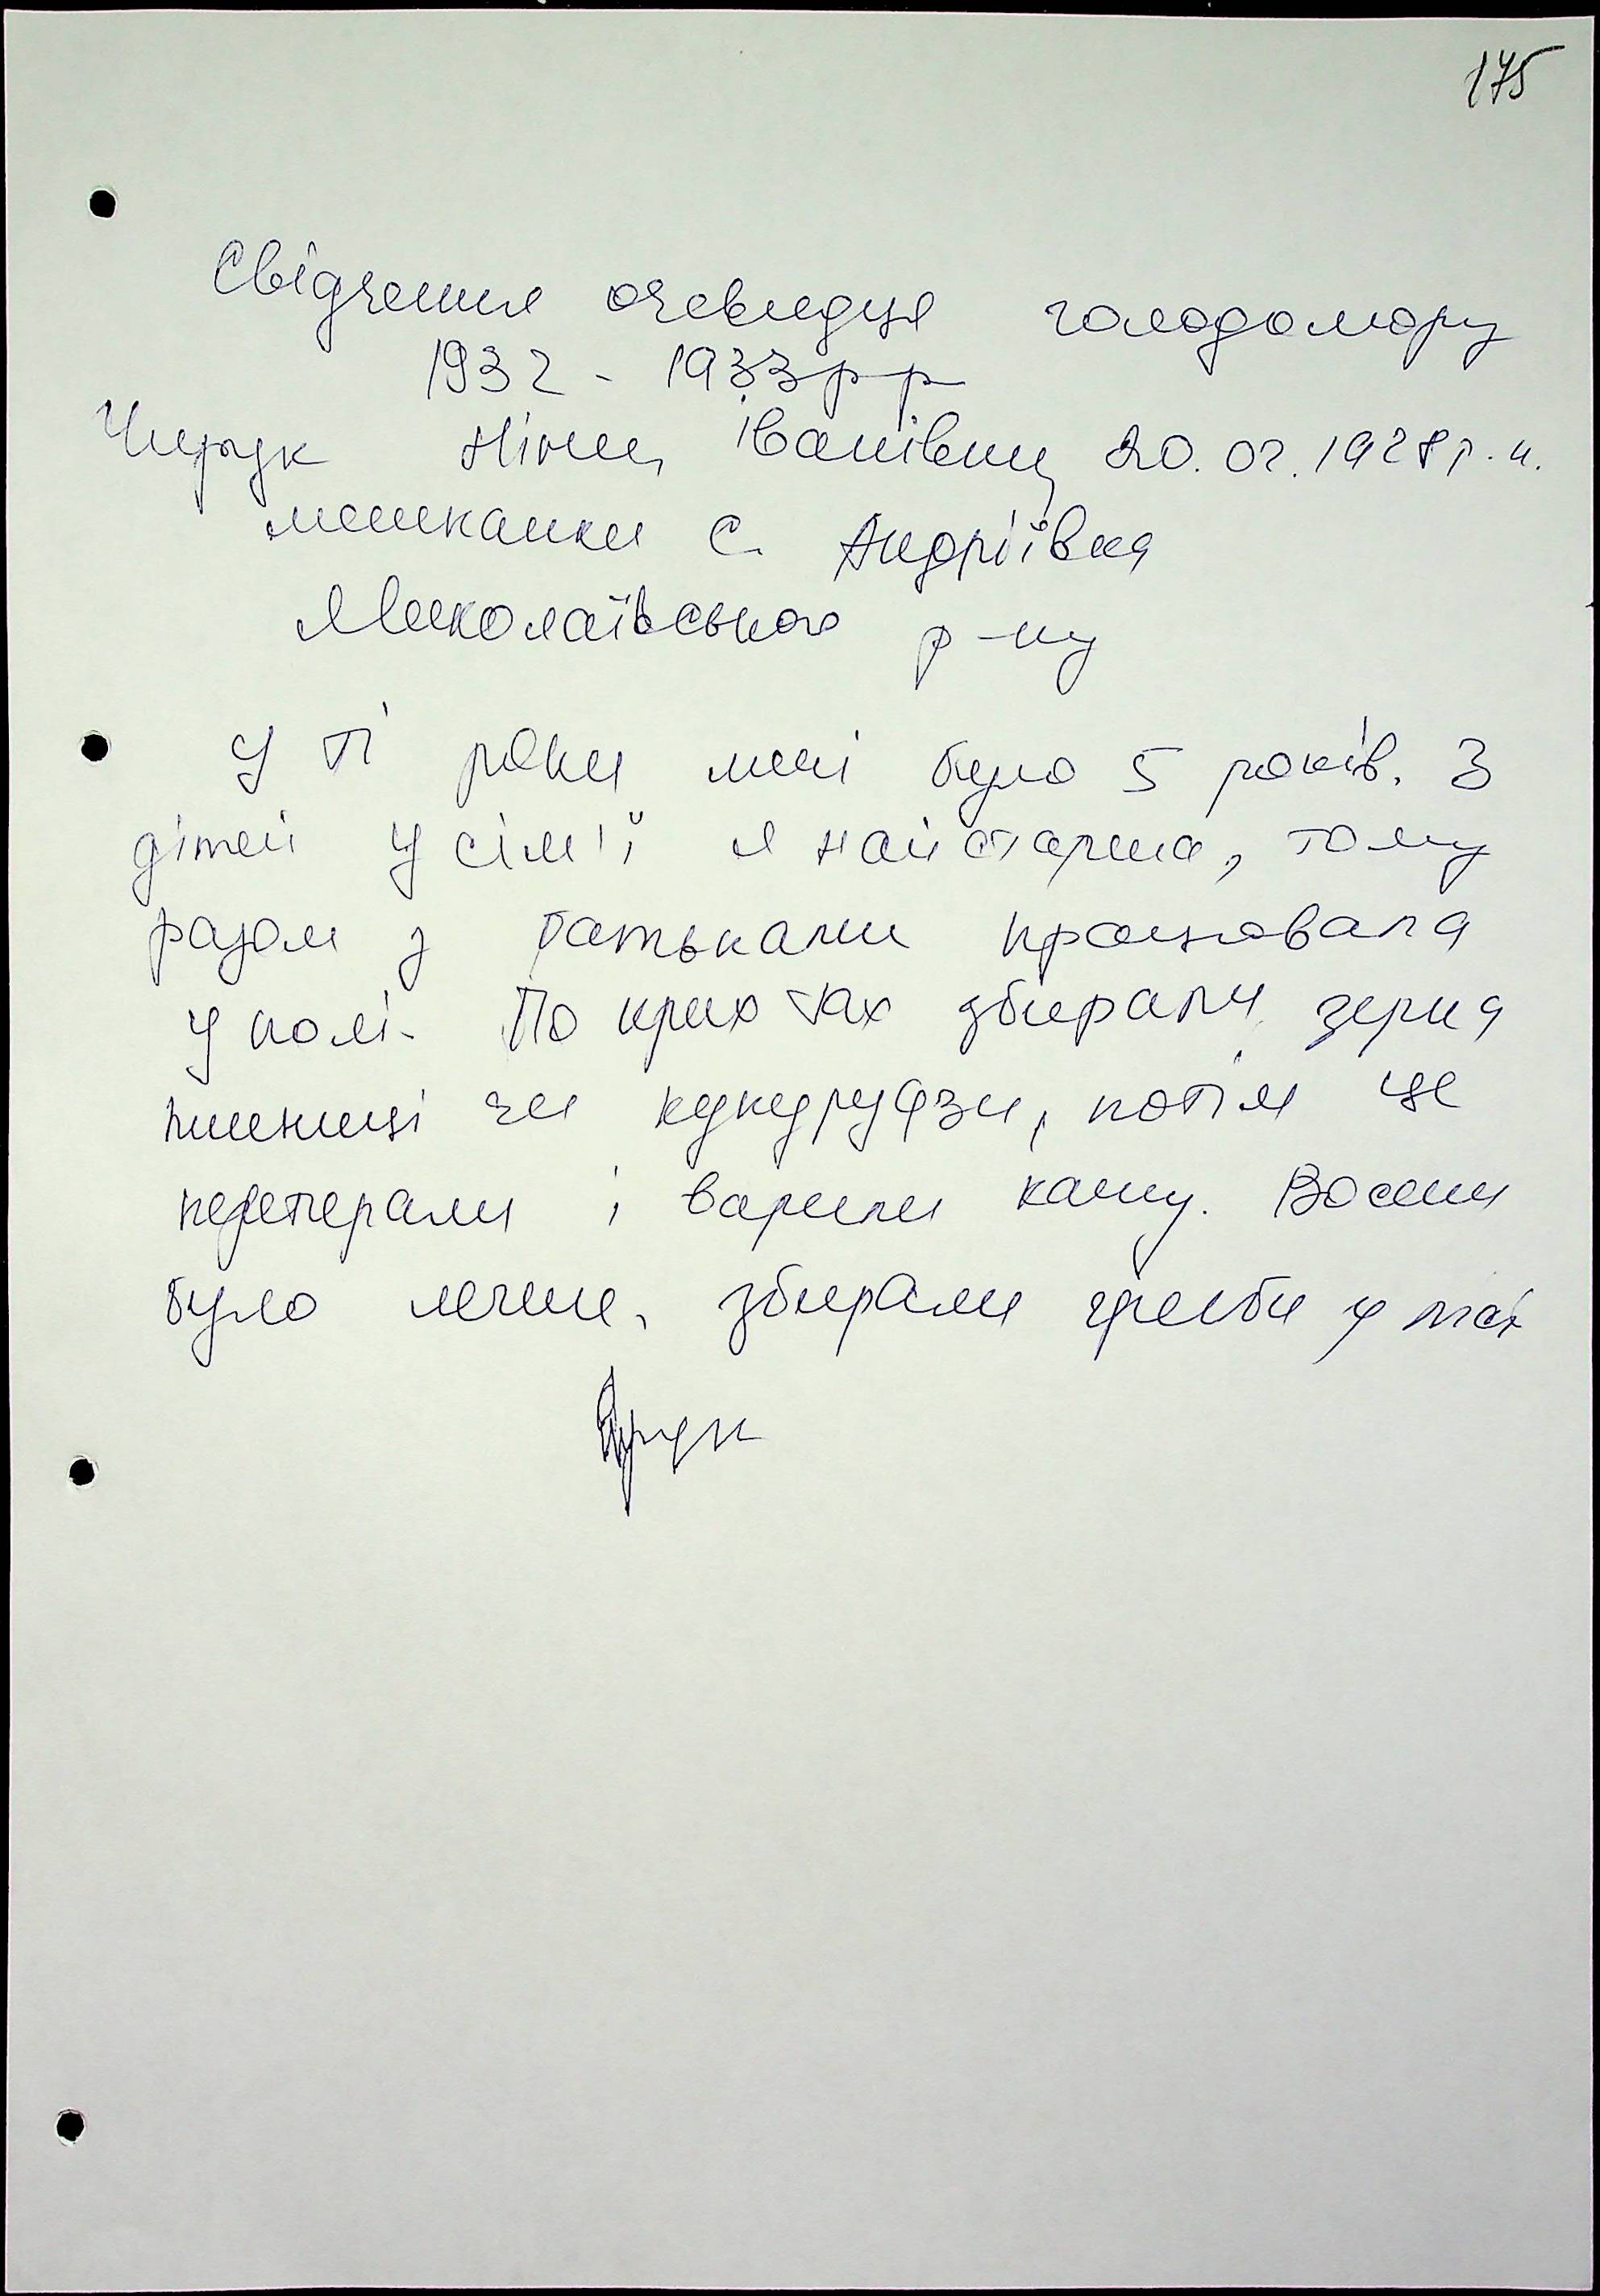 175
Свідчення очевидця голодомору
1932 - 1933 р р
Ніни Іванівни 20.02.1928 р. н.
мешканки с. Андріївка
Миколаївського р-ну
У ті роки мені було 5 років. З
дітей у сім'ї я найстарша, тому
разом з батьками працювала
у полі. По крихтах збирали зерна
пшениці чи кукурудзи, потім це
перетерали і варили кашу. Восени
було легше, збирали гриби у лісі